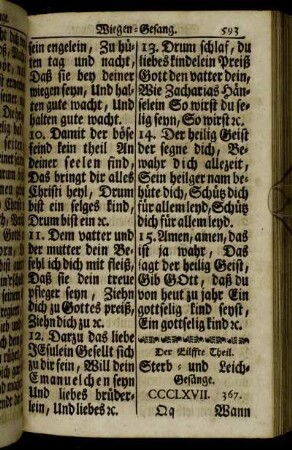 Wiegen-Gesang. 593
sein engelein, Zu hü-
ten tag und nacht,
Daß sie bey deiner
wiegen seyn, Und hal-
ten gute wacht, Und
halten gute wacht.
10. Damit der böse
feind kein theil An
deiner seelen find,
Das bringt dir alles
Christi heyl, Drum
bist ein selges kind,
Drum bist ein ꝛc.
11. Dem vatter und
der mutter dein Be-
fehl ich dich mit fleiß,
Daß sie dein treue
pfleger seyn, Ziehn
dich zu Gottes preiß,
Ziehn dich zu ꝛc.
12. Darzu das liebe
JEsulein Gesellt sich
zu dir fein, Will dein
Emanuelchen seyn
Und liebes brüder-
lein, Und liebes ꝛc.
13. Drum schlaf, du
liebes kindelein Preiß
Gott den vatter dein,
Wie Zacharias Hän-
selein So wirst du se-
lig seyn, So wirst ꝛc.
14. Der heilig Geist
der segne dich, Be-
wahr dich allezeit,
Sein heilger nam be-
hüte dich, Schütz dich
für allem leyd, Schütz
dich für allem leyd.
15. Amen, amen, das
ist ja wahr, Das
sagt der heilig Geist,
Gib GOtt, daß du
von heut zu jahr Ein
gottselig kind seyst,
Ein gottselig kind ꝛc.
Der Eilffte Theil.
Sterb- und Leich-
Gesänge.
CCCLXVII. 367.
Qq Wann